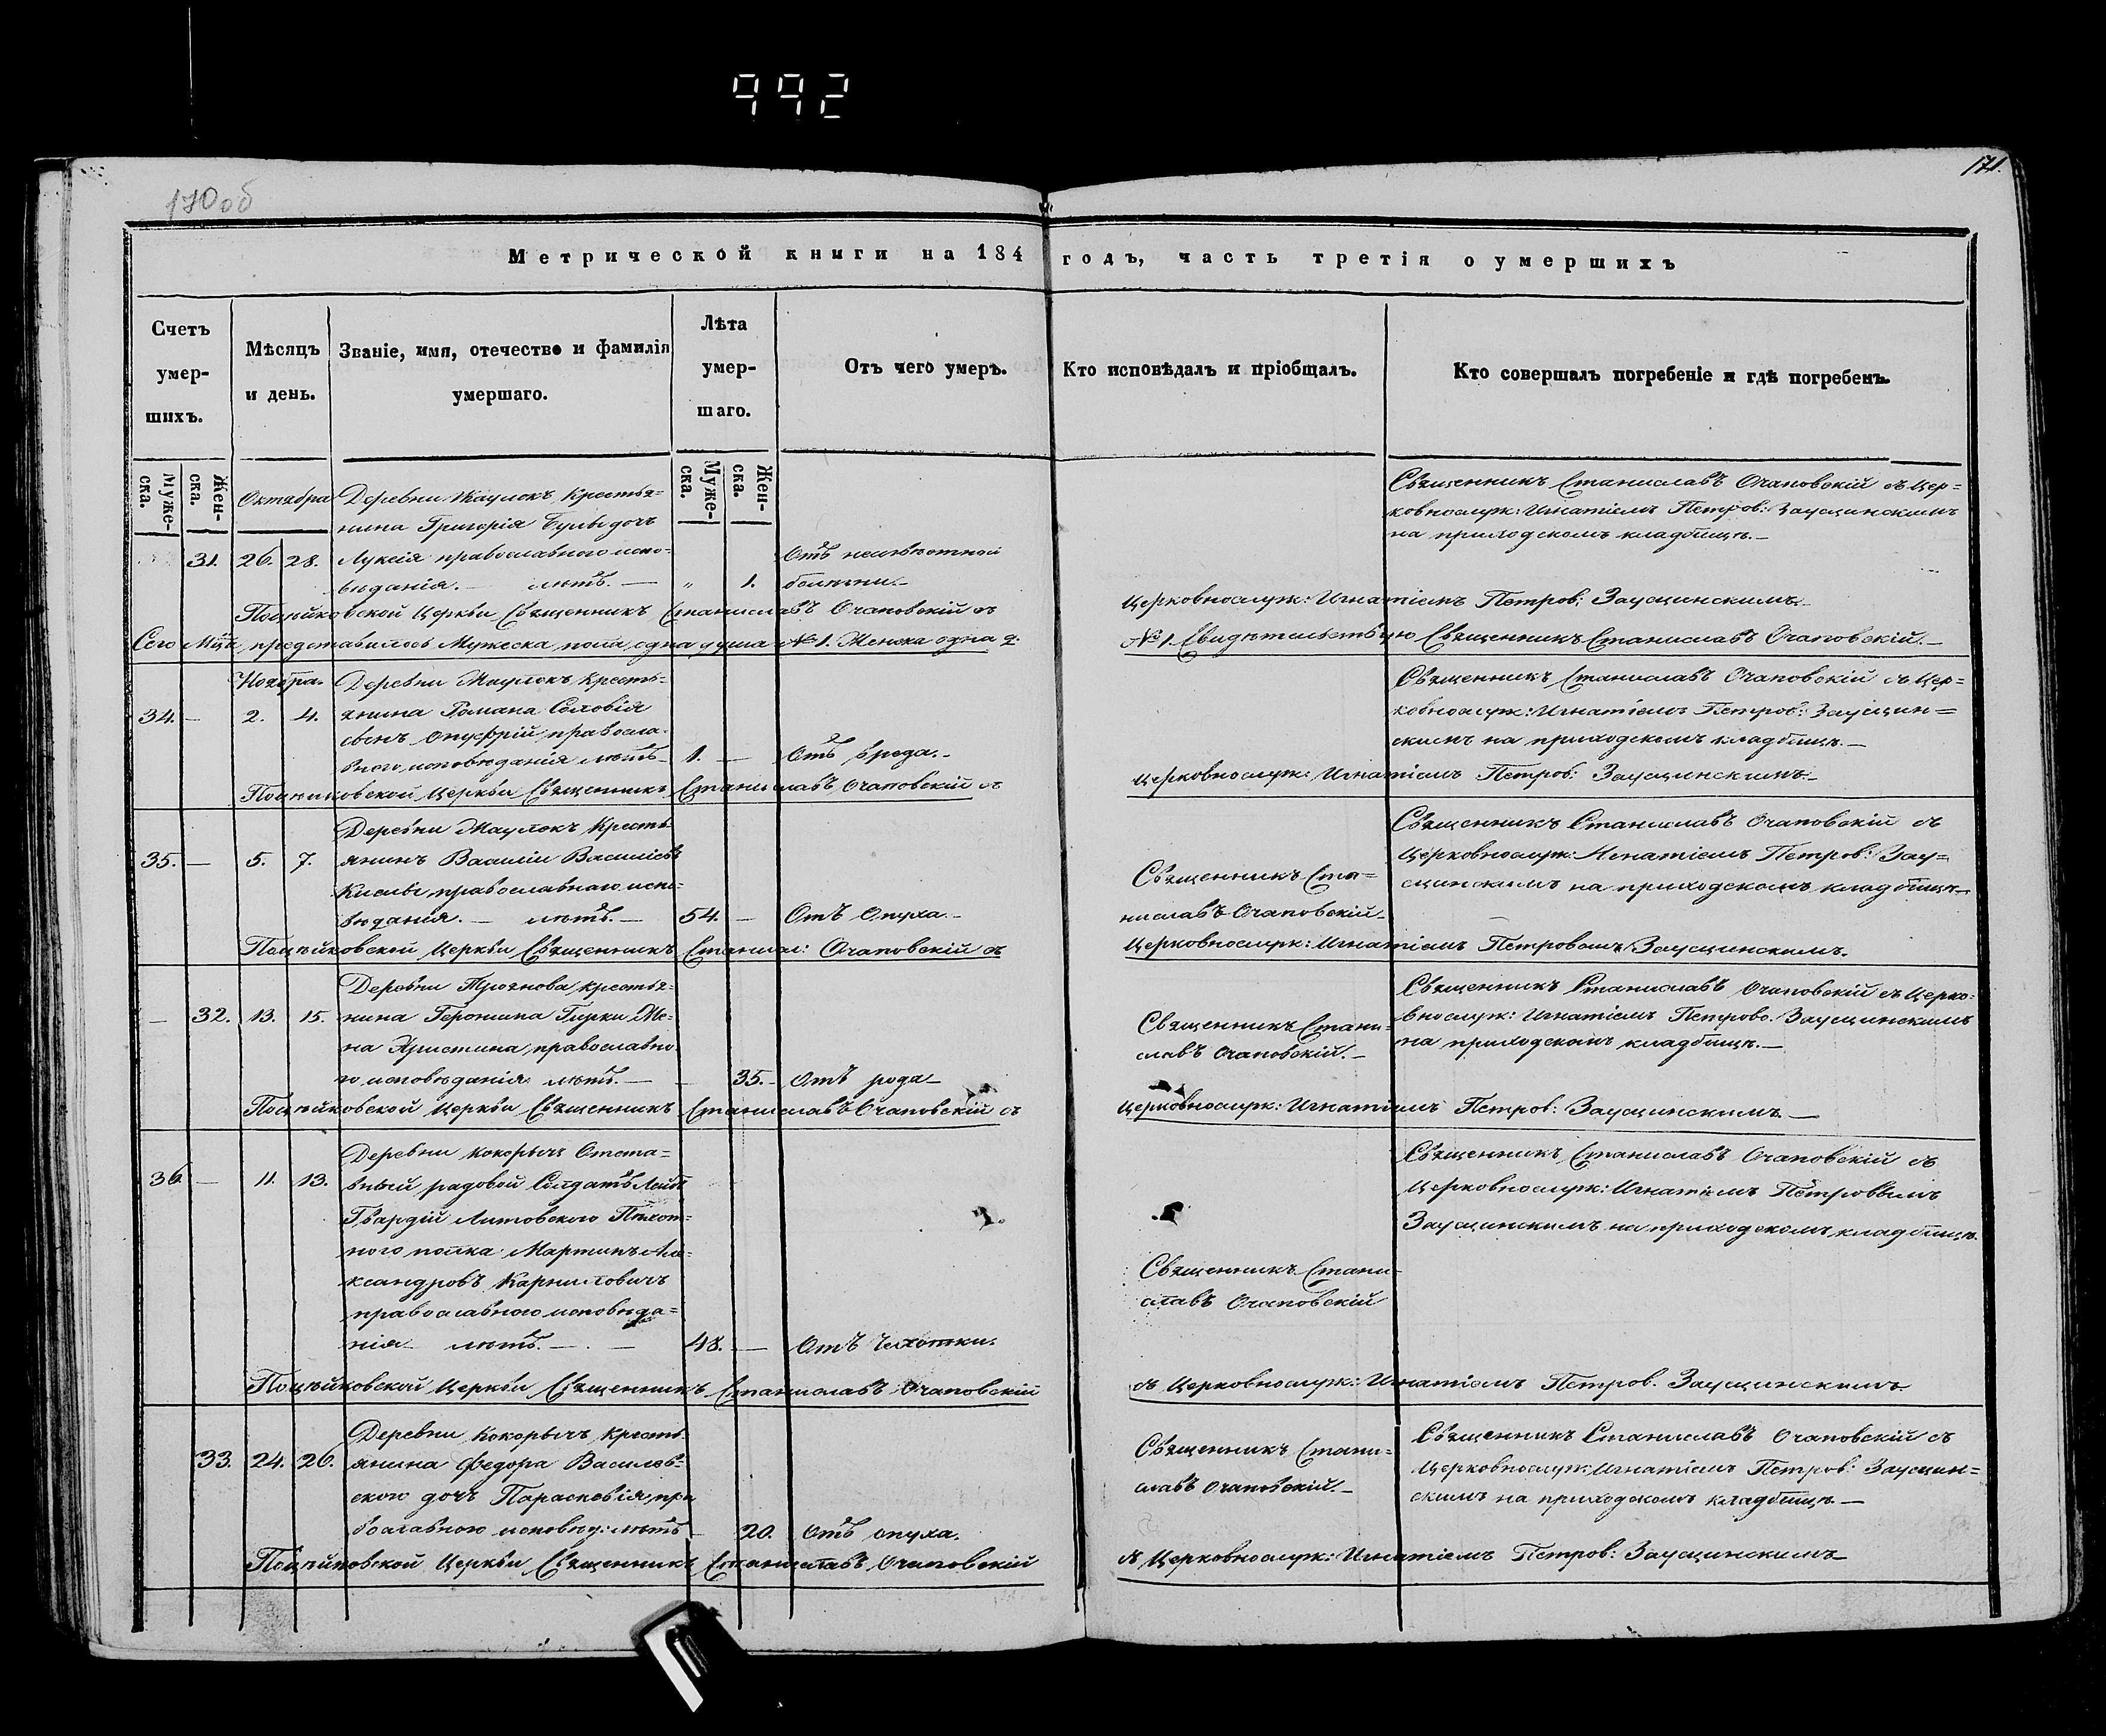 992
170 об
171.
Метрической книги на 184 годъ, часть третія о умершихъ
Счетъ умер-шихъ.
Мѣсяцъ и день.
Званіе, имя, отечество и фамилія умершаго.
Лѣта умер-шаго.
Отъ чего умеръ.
Кто исповѣдалъ и пріобщалъ.
Кто совершалъ погребеніе и гдѣ погребенъ.
Муже-ска.
Жен-ска.
Муже-ска.
Жен-ска.
Октября
Деревни Крестья=
нина Григорія дочь
31. 26. 28. Лукія православнаго испо-
вѣданія. — лѣтъ. — „ 1.
Отъ неизвѣстной
болѣзни.—
Священникъ Станиславъ Очаповскій съ Цер=
ковнослуж: Игнатіемъ Петров: Заусцинскимъ
на приходскомъ кладбищѣ.—
Поцѣйковской Церкви Священникъ Станиславъ Очаповскій съ
Церковнослуж: Игнатіемъ Петров: Заусцинскимъ.—
Сего Мца, представилось Мужеска пола, одна душа № 1. Женска одна д:
№ 1. Свидѣтельствую Священникъ Станиславъ Очаповскій.—
Ноября.
Деревни Крестья-
34. — 2. 4. янина Романа Соловія
сынъ Онуфрій, правосла-
внаго исповѣданія лѣтъ 1. —
Священникъ Станиславъ Очаповскій съ Цер=
ковнослуж: Игнатіемъ Петров: Заусцин=
скимъ на приходскомъ кладбищѣ.—
Поцѣйковской Церкви Священникъ Станиславъ Очаповскій съ
Церковнослуж: Игнатіемъ Петров: Заусцинскимъ.—
Деревни Кресть-
35. — 5. 7. янинъ Василій Василіевъ
православнаго испо-
вѣданія. — лѣтъ. — 54. — Отъ Опуха.—
Священникъ Ста=
ниславъ Очаповскій.—
Священникъ Станиславъ Очаповскій съ
Церковнослуж: Игнатіемъ Петров: Зау=
сцинскимъ на приходскомъ кладбищѣ.—
Поцѣйковской Церкви Священникъ Станисл: Очаповскій съ
Церковнослуж: Игнатіемъ Петровымъ Заусцинскимъ.
Деревни Троянова, крестья-
— 32. 13. 15. нина Геронима Гирки Же-
на Христина, православна-
го исповѣданія лѣтъ. — — 35. — Отъ рода—
Священникъ Стани-
славъ Очаповскій.—
Священникъ Станиславъ Очаповскій съ Церко-
внослуж: Игнатіемъ Петрово. Заусцинскимъ
на приходскомъ кладбищѣ.—
Поцѣйковской Церкви Священникъ Станиславъ Очаповскій съ
Церковнослуж: Игнатіемъ Петров: Заусцинскимъ.—
Деревни Кокорычъ Отста=
36. — 11. 13. вный рядовой Солдатъ Лейбъ
Гвардій Литовского Пѣхот-
ного полка Мартинъ Але-
ксандровъ Карниловичъ
православного исповѣда=
нія лѣтъ. — . — 48. — Отъ Чахотки.
Священникъ Стани-
славъ Очаповскій
Священникъ Станиславъ Очаповскій съ
Церковнослуж: Игнатіемъ Петровымъ
Заусцинскимъ на приходскомъ кладбищѣ.
Поцѣйковской Церкви Священникъ Станиславъ Очаповскій
съ Церковнослуж: Игнатіемъ Петров. Заусцинскимъ
Деревни Кокорычъ Кресть-
33. 24. 26. янина Федора Василев-
ского дочь Параскевія, пра
вославного исповѣд: лѣтъ — 20. Отъ опуха.
Священникъ Стани=
славъ Очаповскій.—
Священникъ Станиславъ Очаповскій съ
Церковнослуж: Игнатіемъ Петров: Заусцин=
скимъ на приходскомъ кладбищѣ.—
Поцѣйковской Церкви Священникъ Станиславъ Очаповскій
съ Церковнослуж: Игнатіемъ Петров: Заусцинскимъ